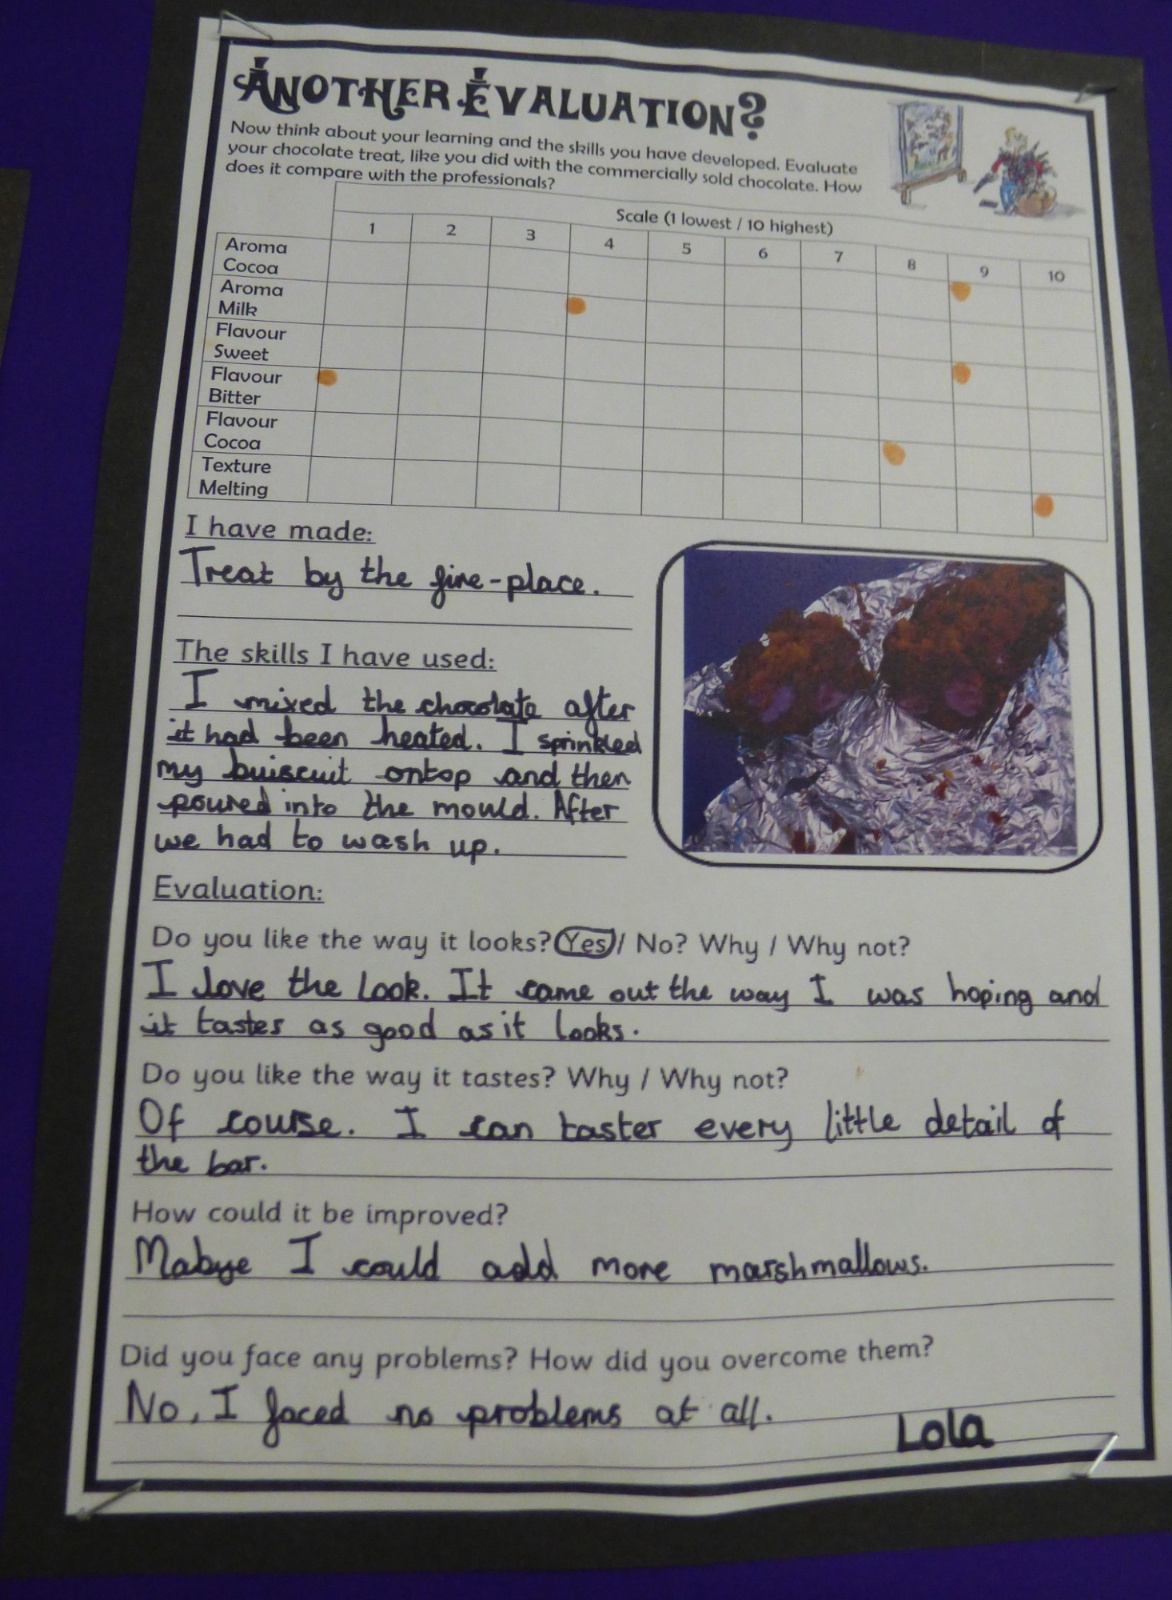 ANOTHER EVALUATION?
Now think about your learning and the skills you have developed. Evaluate
your chocolate treat, like you did with the commercially sold chocolate. How
does it compare with the professionals?
Scale (1 lowest / 10 highest)
1 2 3 4 5 6 7 8 9 10
Aroma
Cocoa
Aroma
Milk
Flavour
Sweet
Flavour
Bitter
Flavour
Cocoa
Texture
Melting
I have made:
Treat by the fire-place.
The skills I have used:
I mixed the chocolate after
it had been heated. I sprinkled
my buiscuit ontop and then
poured into the mould. After
we had to wash up.
Evaluation:
Do you like the way it looks? Yes / No? Why / Why not?
I love the look. It came out the way I was hoping and
it tastes as good as it looks.
Do you like the way it tastes? Why / Why not?
Of course. I can taster every little detail of
the bar.
How could it be improved?
Mabye I could add more marshmallows.
Did you face any problems? How did you overcome them?
No, I faced no problems at all.
Lola